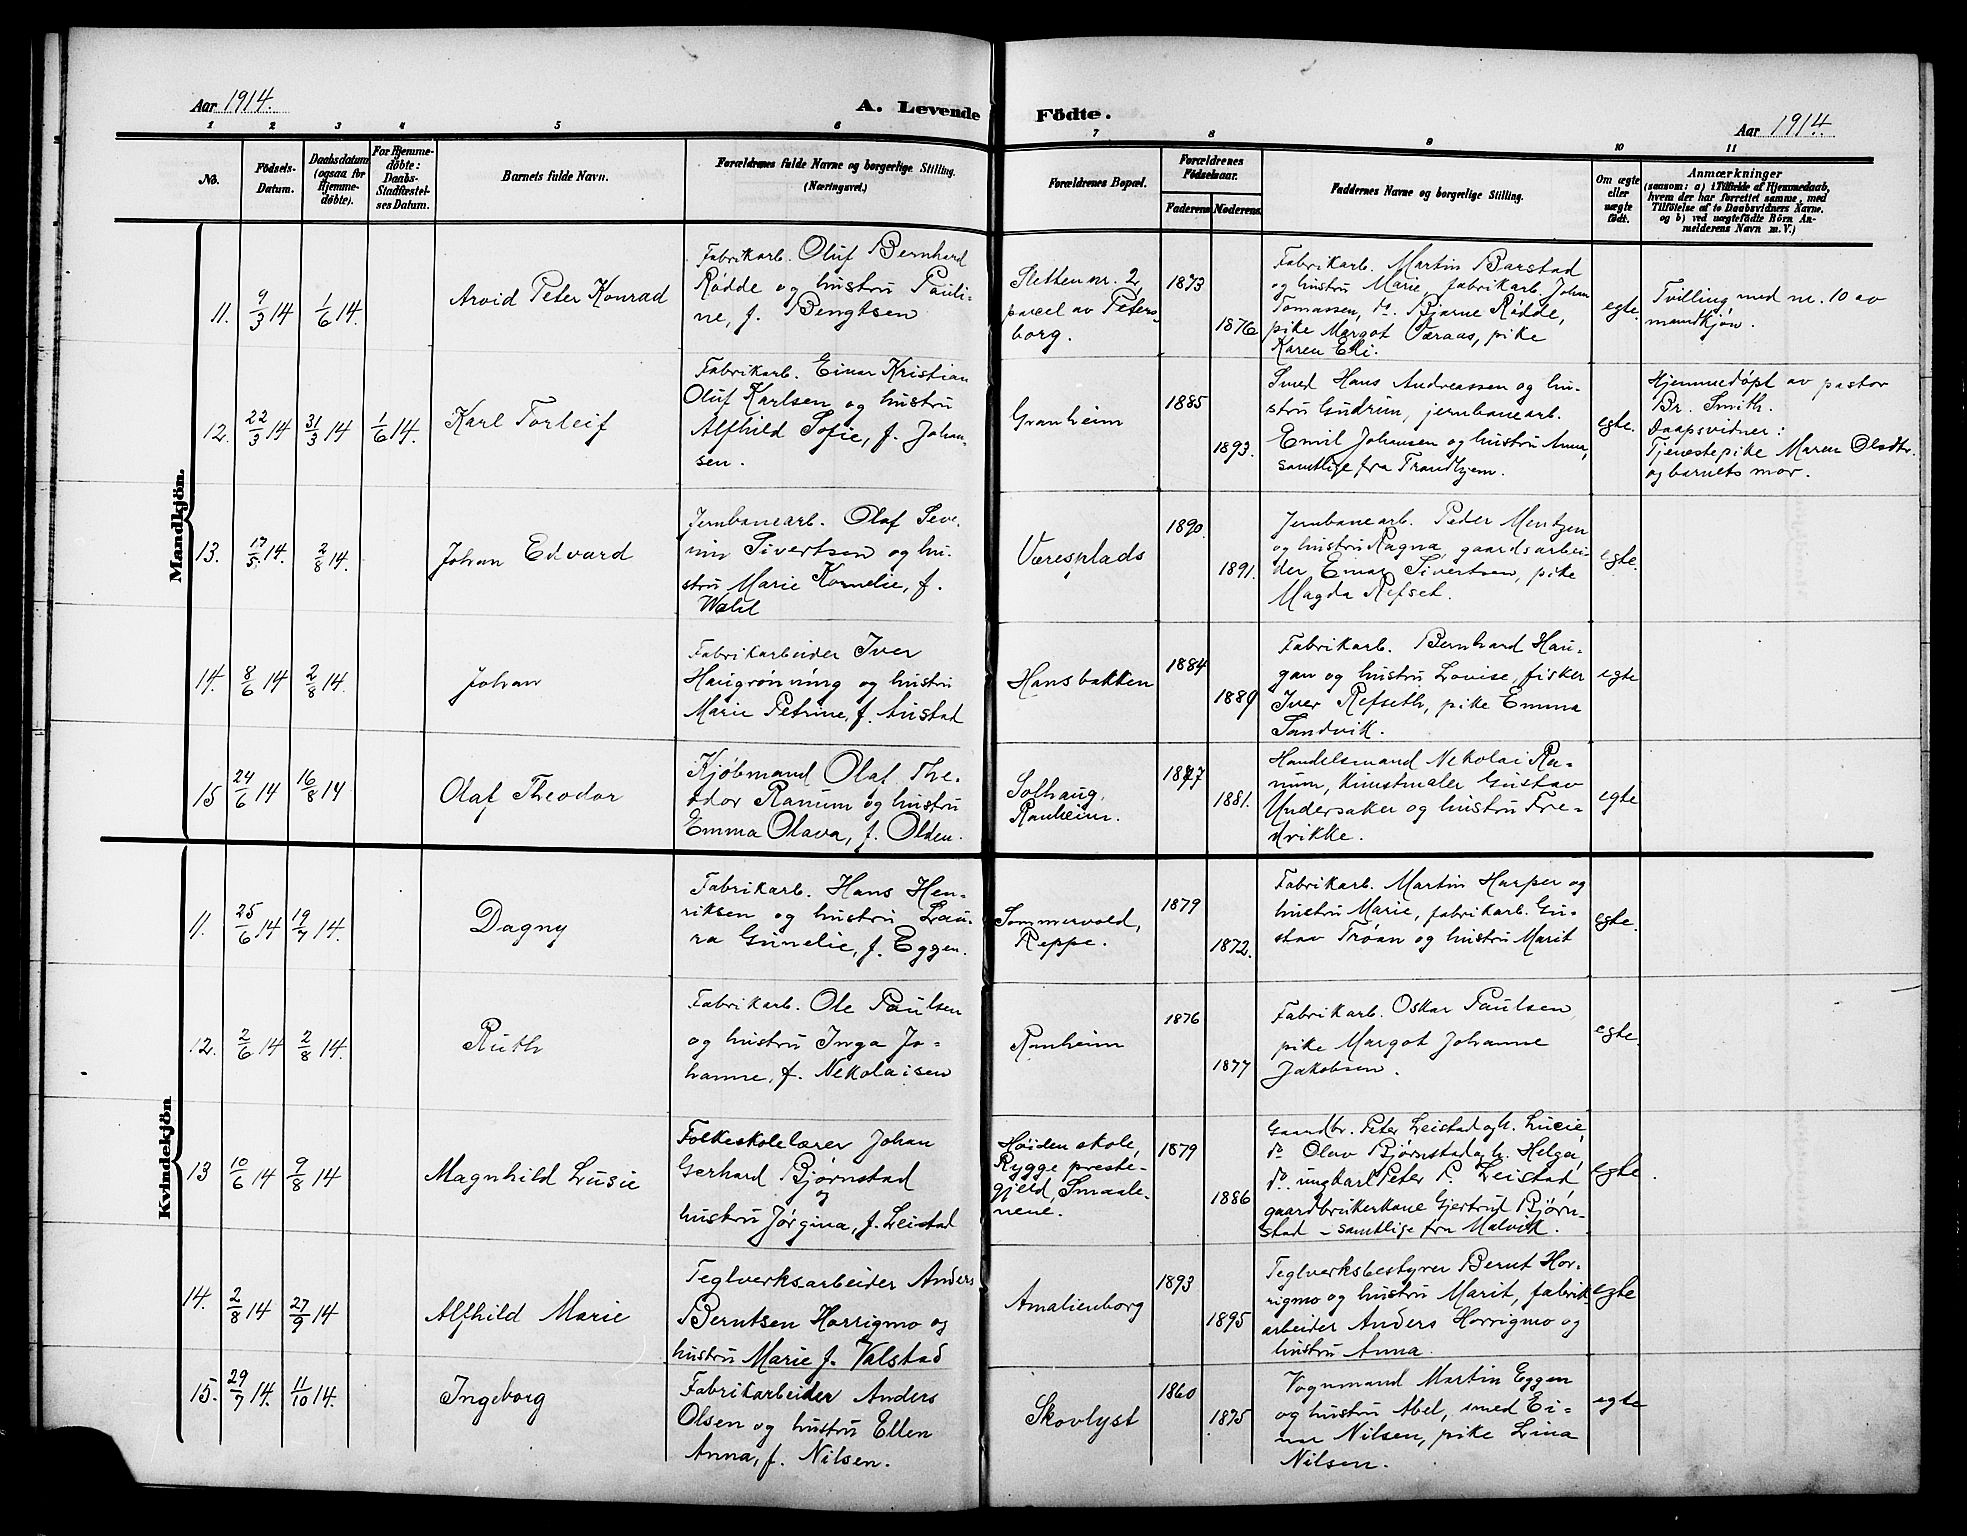 Aar 1914.
A. Levende Födte.
Aar 1914.
1 2 3 4 5 6 7 8 9 10 11
No.
Födsels-
Datum.
Daabsdatum
(ogsaa for
Hjemme-
døbte).
For Hjemme-
døbte:
Daabs-
Stadfæstel-
ses Datum.
Barnets fulde Navn.
Forældrenes fulde Navne og borgerlige Stilling.
(Næringsvei.)
Forældrenes Bopæl.
Forældrenes
Fødselsaar.
Faderens Moderens.
Faddernes Navne og borgerlige Stilling.
Om ægte
eller
uægte
født.
Anmærkninger
(saasom: a) i Tilfælde af Hjemmedaab,
hvem der har forrettet samme, med
Tilføielse af to Daabsvidners Navne,
og b) ved uægtefødte Börn An-
melderens Navn m. V.)
Mandkjön.
11.
9/3 14
1/6 14.
Arvid Peter Konrad
Fabrikarb. Oluf Bernhard
Rødde og hustru Pauli-
ne, f. Bengtsen
Sletten nr. 2,
parcel av Peters-
borg.
1873
1876
Fabrikarb. Martin Barstad
og hustru Marie, fabrikarb. Johan
Tomassen, do. Bjarne Rødde,
pike Margot Væraas, pike
Karen Eli.
egte.
Tvilling med nr. 10 av
mandkjøn.
12.
22/3 14
31/3 14
1/6 14.
Karl Torleif
Fabrikarb. Einar Kristian
Oluf Karlsen og hustru
Alfhild Sofie, f. Johan-
sen.
Granheim
1885
1893.
Smed Hans Andreassen og hu-
stru Gudrun, jernbanearb.
Emil Johansen og hustru Anna,
samtlige fra Trondhjem.
egte.
Hjemmedøpt av pastor
Br. Smith.
Daapsvidner:
Tjenestepike Maren Olsdtr.
og barnets mor.
13.
17/5 14.
2/8 14.
Johan Edvard
Jernbanearb. Olaf Seve-
rin Sivertsen og hu-
stru Marie Kornelie, f.
Wold
Væresplads
1890.
1891.
Jernbanearb. Peder Mentzen
og hustru Ragna, gaardsarbei-
der Einar Sivertsen, pike
Magda Refset.
egte.
14.
8/6 14
2/8 14.
Johan
Fabrikarbeider Iver
Haugrønning og hustru
Marie Petrine, f. Austad
Hansbakken
1884
1889
Fabrikarb. Bernhard Hau-
gan og hustru Lovise, fisker
Iver Refseth, pike Emma
Sandvik.
egte
15
24/6 14
16/8 14
Olaf Theodor
Kjøbmand Olaf The-
odor Ranum og hustru
Emma Olava, f. Olden.
Solhaug,
Ranheim.
1877
1881.
Handelsmand Nekolai Ra-
num, kunstmaler Gustav
Undersaker og hustru Fre-
drikke.
egte
Kvindekjön
11.
25/6 14
19/7 14.
Dagny
Fabrikarb. Hans Hen-
riksen og hustru Lau-
ra Gunelie, f. Eggen.
Sommervold,
Reppe.
1879
1872.
Fabrikarb. Martin Harper og
hustru Marie, fabrikarb. Gu-
stav Trøan og hustru Marit
egte.
12.
2/6 14
2/8 14.
Ruth
Fabrikarb. Ole Paulsen
og hustru Inga Jo-
hanne, f. Nekolaisen
Ranheim
1876
1877
Fabrikarb. Oskar Paulsen,
pike Margot Johanne
Jakobsen.
egte.
13
10/6 14
9/8 14
Magnhild Lusie
Folkeskolelærer Johan
Gerhard Bjørnstad
og
hustru Jørgina, f. Leistad
Høiden skole,
Rygge preste-
gjeld, Smaale-
nene.
1879
1886
Gaardbr. Peter Leistad og h. Lucie,
do. Olav Bjørnstad og h. Helga,
do. ungkarl Peter P. Leistad
gaardbrukerkone Gjertrud Bjørn-
stad - samtlige fra Malvik.
egte.
14.
2/8 14
27/9 14
Alfhild Marie
Teglverksarbeider Anders
Berntsen Horrigmo og
hustru Marie f. Valstad
Amalienborg
1893
1895
Teglverksbestyrer Bernt Hor-
rigmo og hustru Marit, fabrik-
arbeider Anders Horrigmo og
hustru Anna.
egte
15.
29/7 14.
11/10 14.
Ingeborg
Fabrikarbeider Anders
Olsen og hustru Ellen
Anna, f. Nilsen.
Skovlyst
1860
1875
Vognmand Martin Eggen
og hustru Abel, smed Ei-
nar Nilsen, pike Lina
Nilsen.
egte